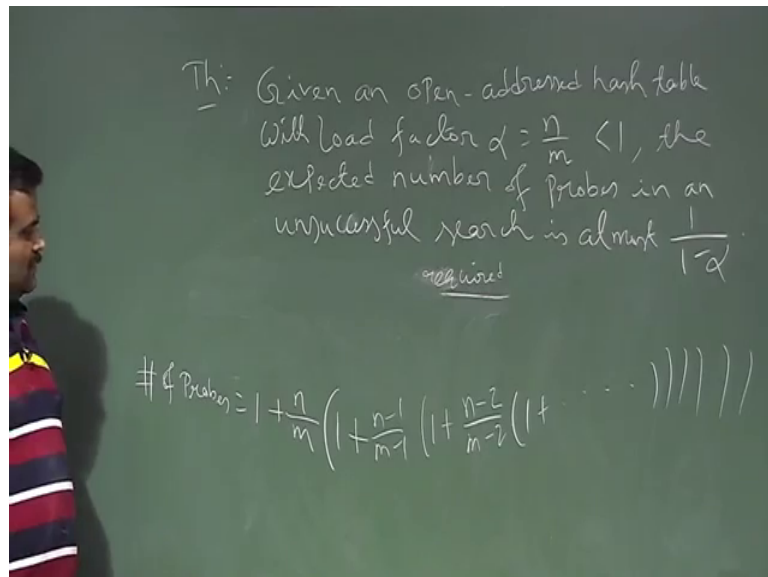 Th:- Given an open-addressed hash table
with load factor α = n/m < 1, the
expected number of probes in an
unsuccessful search is almost 1/(1-α).
required
# of Probes = 1 + n/m (1 + (n-1)/(m-1) (1 + (n-2)/(m-2) (1 + ..... )))))))